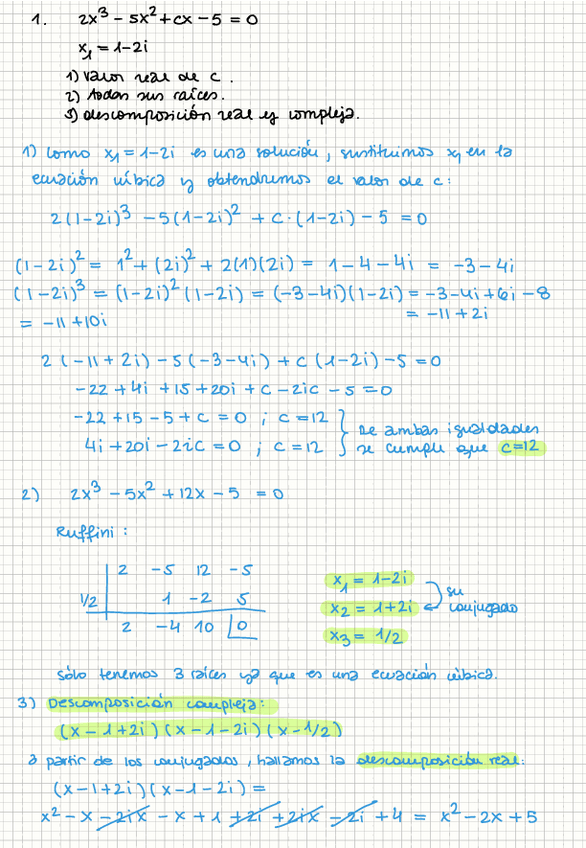 1. 2x³ - 5x² + cx - 5 = 0
x₁ = 1-2i
1) Valor real de c.
2) todas sus raíces.
3) descomposición real y compleja.
1) Como x₁ = 1-2i es una solución, sustituimos x₁ en la
ecuación cúbica y obtendremos el valor de c:
2(1-2i)³ - 5(1-2i)² + c·(1-2i) - 5 = 0
(1-2i)² = 1² + (2i)² + 2(1)(2i) = 1-4-4i = -3-4i
(1-2i)³ = (1-2i)²(1-2i) = (-3-4i)(1-2i) = -3-4i+6i-8
= -11+10i = -11+2i
2(-11+2i) - 5(-3-4i) + c(1-2i) - 5 = 0
-22+4i+15+20i+c-2ic-5 = 0
-22+15-5+c = 0 ; c = 12
4i+20i-2ic = 0 ; c = 12
De ambas igualdades
se cumple que c=12
2) 2x³ - 5x² + 12x - 5 = 0
Ruffini:
2 -5 12 -5
1/2 1 -2 5
2 -4 10 0
x₁ = 1-2i
x₂ = 1+2i
x₃ = 1/2
su
conjugado
Sólo tenemos 3 raíces ya que es una ecuación cúbica.
3) Descomposición compleja:
(x-1+2i)(x-1-2i)(x-1/2)
a partir de los conjugados, hallamos la descomposición real:
(x-1+2i)(x-1-2i) =
x² - x - 2ix - x + 1 + 2i + 2ix - 2i + 4 = x² - 2x + 5